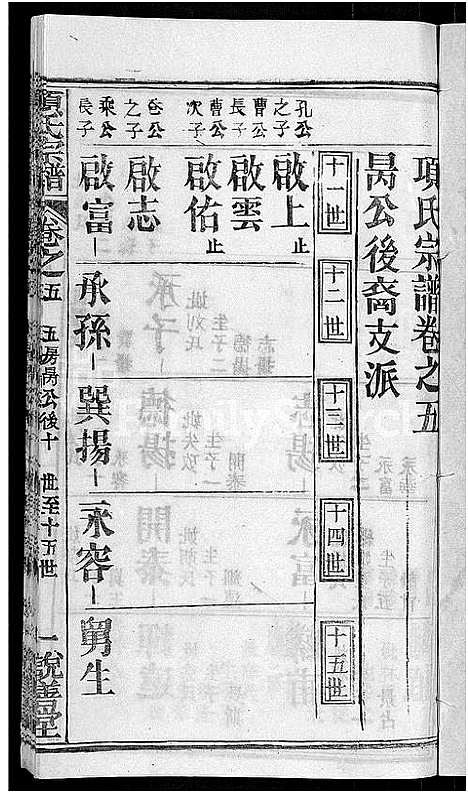 項氏宗譜卷之五
昺公後裔支派
十一世
十二世
十三世
十四世
十五世
孔公之子
啟上止
曹公長子
啟雲
曹公次子
啟佑止
之子
啟志
乘公長子
啟富
承孫
巽揚
永容
舅生
項氏宗譜
卷之五
五房昺公後十
世至十五世
一
說善堂